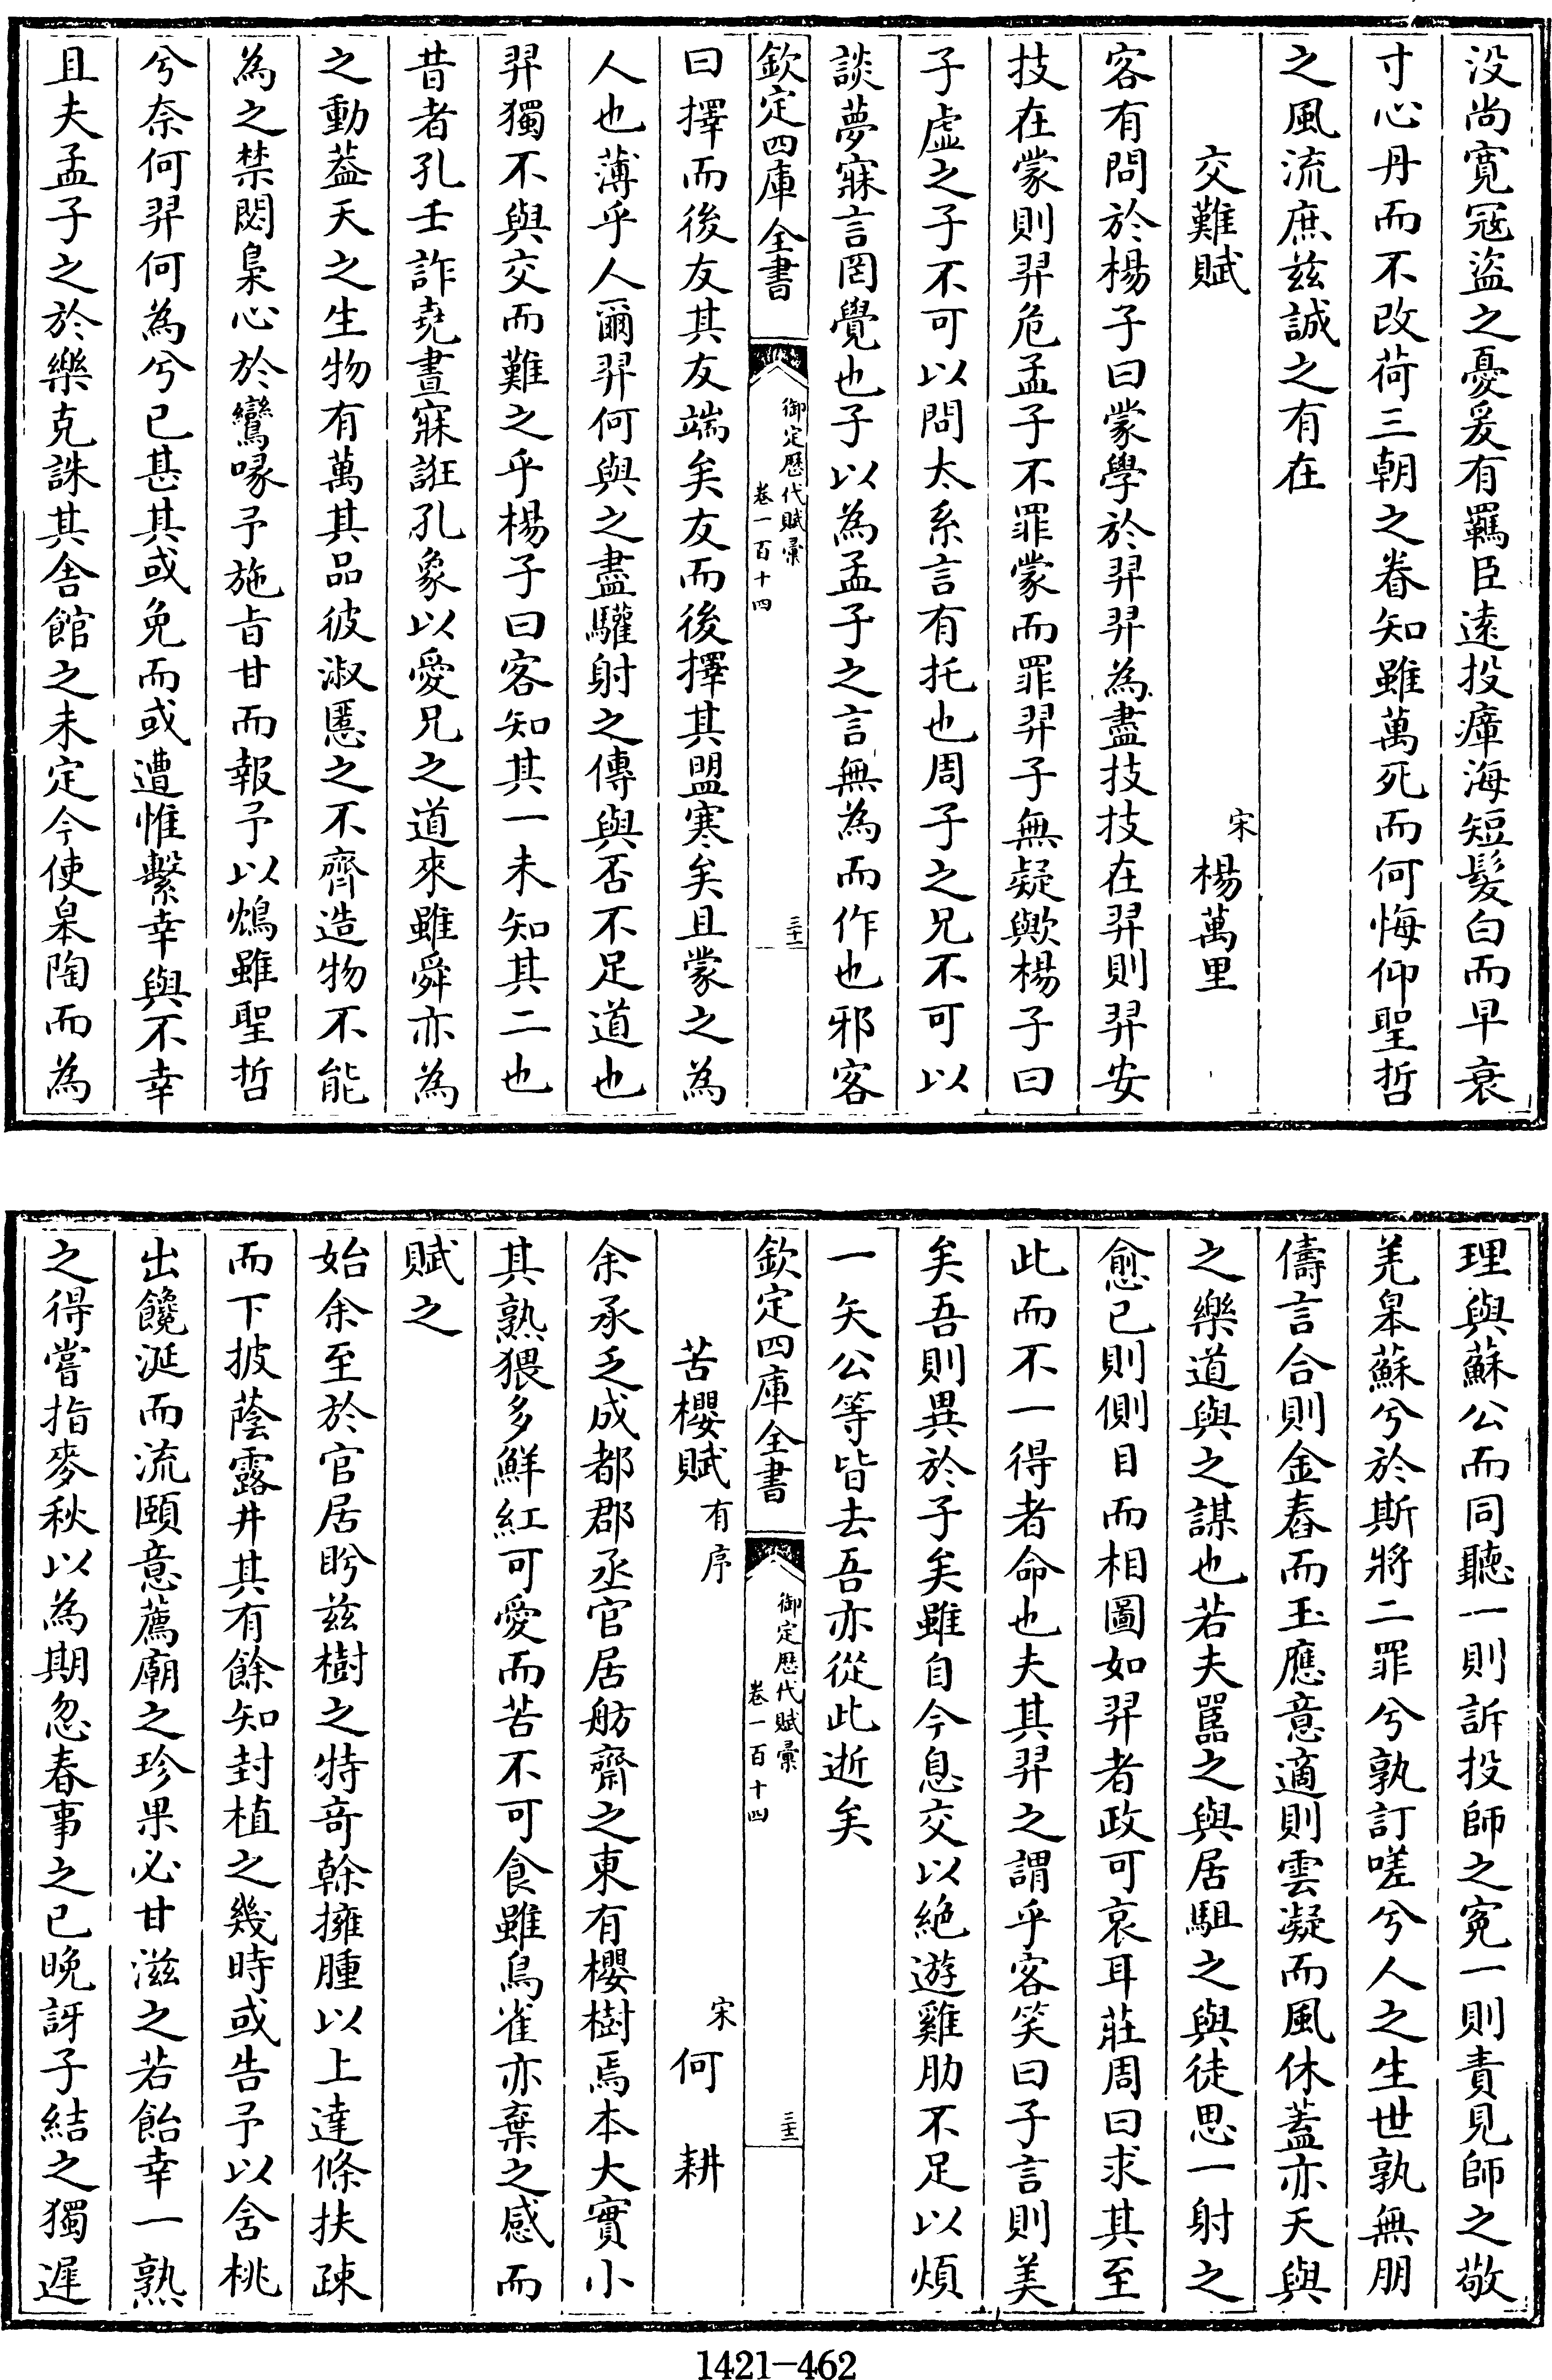 没尚寛冦盜之憂爰有羈臣逺投瘴海短髮白而早衰
寸心丹而不改荷三朝之眷知雖萬死而何悔仰聖哲
之風流庶兹誠之有在
交難賦
宋
楊萬里
客有問於楊子曰蒙學於羿羿為盡技技在羿則羿安
技在蒙則羿危孟子不罪蒙而罪羿子無疑歟楊子曰
子虚之子不可以問太系言有托也周子之兄不可以
談夢寐言罔覺也子以為孟子之言無為而作也邪客
欽定四庫全書
御定歴代賦彙
卷一百十四
三十一
曰擇而後友其友端矣友而後擇其盟寒矣且蒙之為
人也薄乎人爾羿何與之盡驩射之傳與否不足道也
羿獨不與交而難之乎楊子曰客知其一未知其二也
昔者孔壬詐堯晝寐誑孔象以愛兄之道來雖舜亦為
之動葢天之生物有萬其品彼淑慝之不齊造物不能
為之禁閟梟心於鸞喙予施㫖甘而報予以鴆雖聖哲
兮奈何羿何為兮已甚其或免而或遭惟繫幸與不幸
且夫孟子之於樂克誅其舍館之未定今使皋陶而為
理與蘇公而同聽一則訴投師之寃一則責見師之敬
羌皋蘇兮於斯將二罪兮孰訂嗟兮人之生世孰無朋
儔言合則金舂而玉應意適則雲凝而風休蓋亦天與
之樂道與之謀也若夫嚚之與居駔之與徒思一射之
愈已則側目而相圖如羿者政可哀耳莊周曰求其至
此而不一得者命也夫其羿之謂乎客笑曰子言則美
矣吾則異於子矣雖自今息交以絶遊雞肋不足以煩
一矢公等皆去吾亦從此逝矣
欽定四庫全書
御定歴代賦彙
卷一百十四
三十二
苦櫻賦
有序
宋
何耕
余承乏成都郡丞官居舫齋之東有櫻樹焉本大實小
其熟猥多鮮紅可愛而苦不可食雖鳥雀亦棄之感而
賦之
始余至於官居盻兹樹之特奇幹擁腫以上達條扶疎
而下披蔭露井其有餘知封植之幾時或告予以含桃
出饞涎而流頤意薦廟之珍果必甘滋之若飴幸一熟
之得嘗指麥秋以為期忽春事之已晚訝子結之獨遲
1421-462